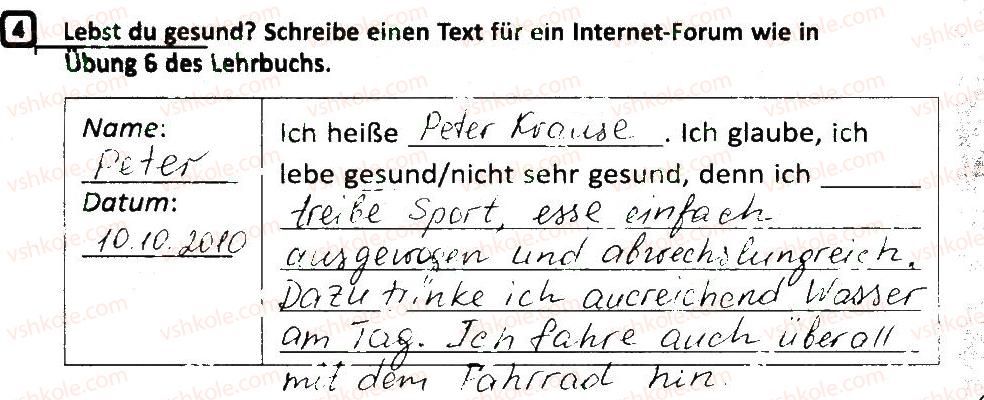 4 Lebst du gesund? Schreibe einen Text für ein Internet-Forum wie in
Übung 6 des Lehrbuchs.
Name:
Peter
Datum:
10.10.2010
Ich heiße Peter Krause. Ich glaube, ich
lebe gesund/nicht sehr gesund, denn ich
treibe Sport, esse einfach
ausgewogen und abwechslungreich.
Dazu trinke ich aucreichend Wasser
am Tag. Ich fahre auch überall
mit dem Fahrrad hin.